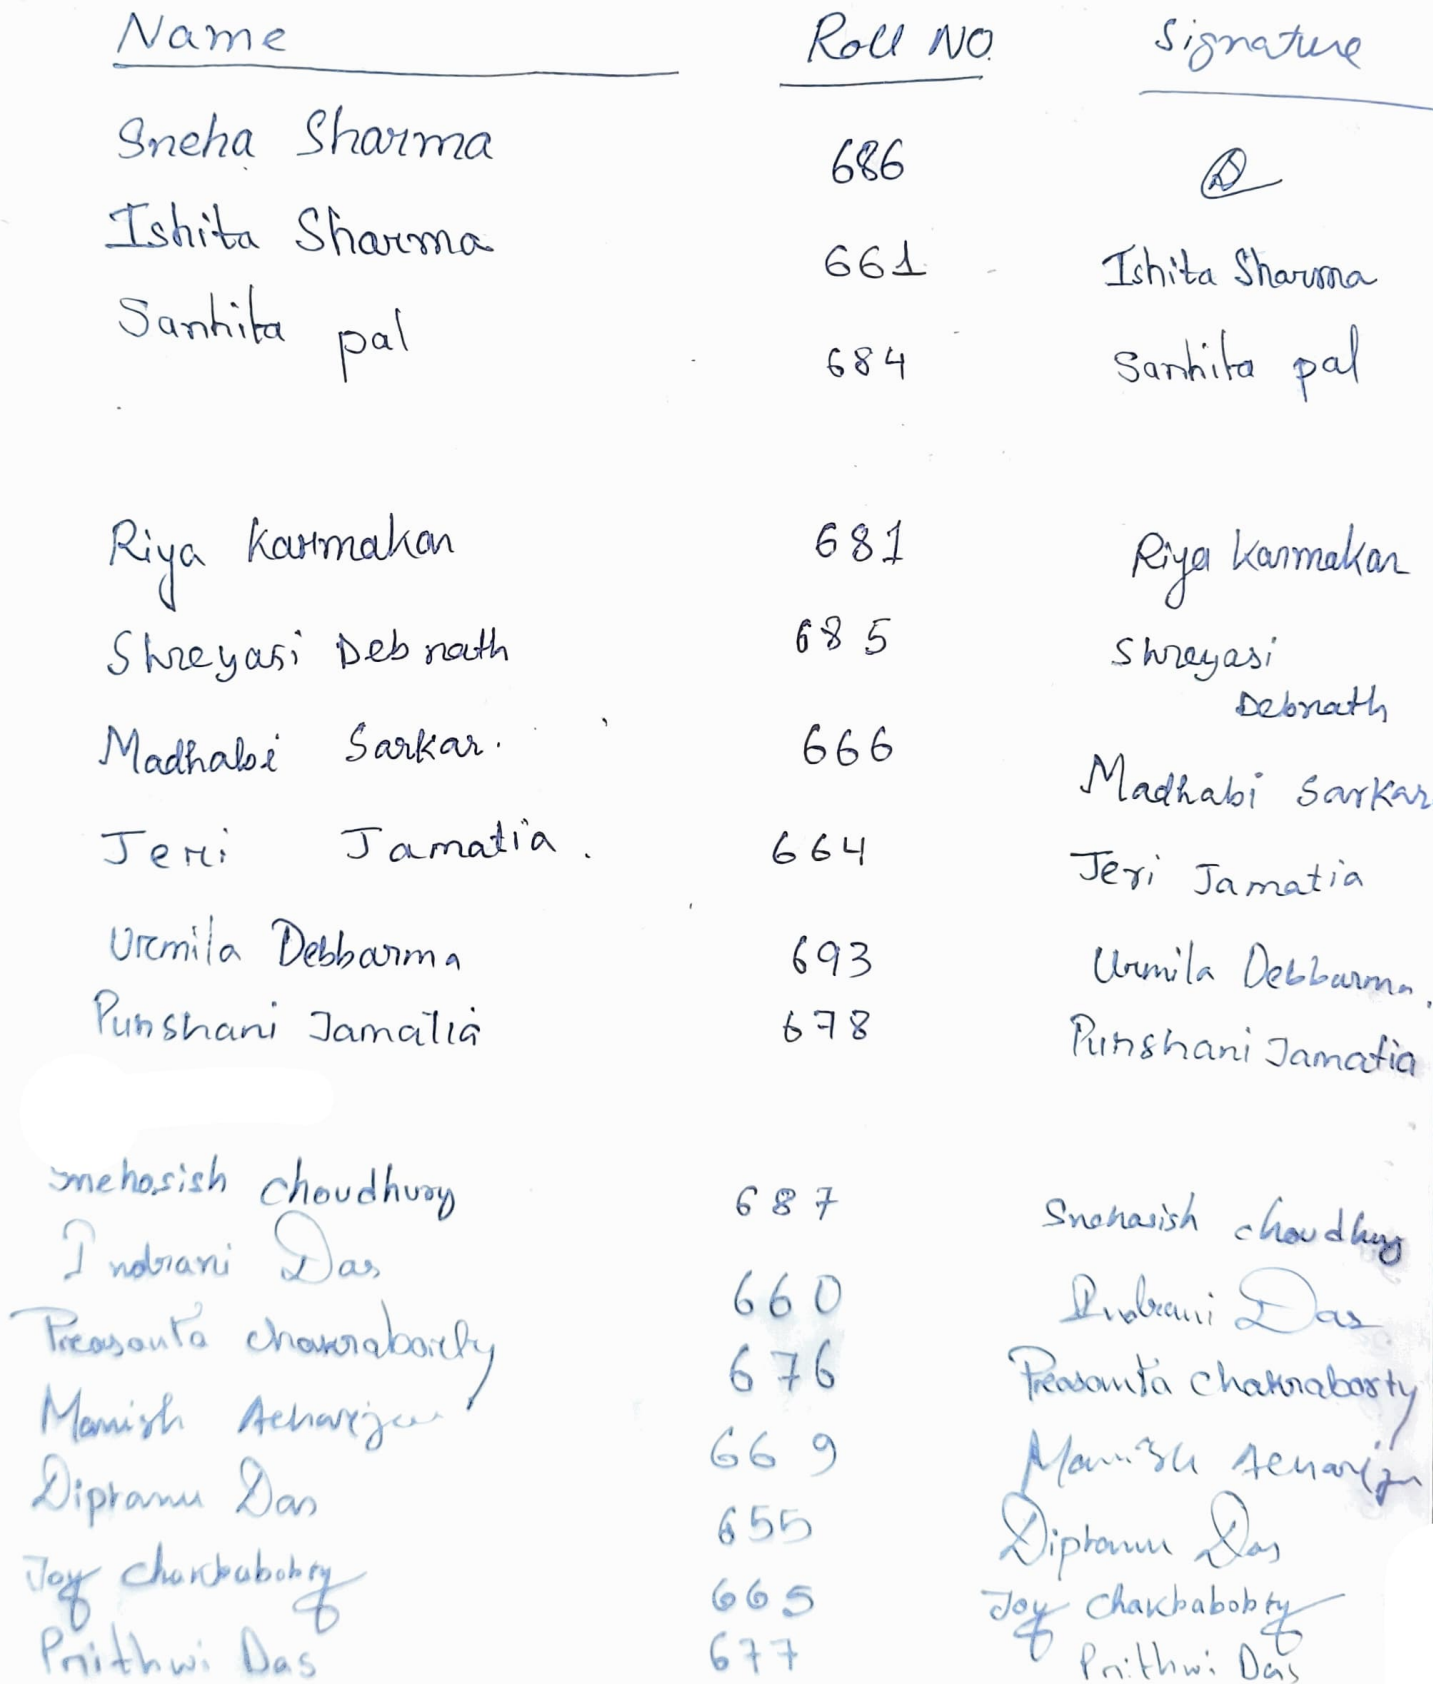 Name Roll NO. Signature
Sneha Sharma 686
Ishita Sharma 661 Ishita Sharma
Sanhita pal 684 Sanhita pal
Riya Karmakar 681 Riya Karmakar
Shreyasi Debnath 685 Shreyasi
Debnath
Madhabi Sarkar. 666 Madhabi Sarkar
Jeri Jamatia. 664 Jeri Jamatia
Urmila Debbarma 693 Urmila Debbarma.
Punshani Jamatia 678 Punshani Jamatia
Snehasish Choudhury 687 Snehasish Choudhury
Indrani Das 660 Indrani Das
Prasanta Chakraborty 676 Prasanta Chakraborty
Manish Acharjee 669 Manish Acharjee
Diptanu Das 655 Diptanu Das
Joy Chakraborty 665 Joy Chakraborty
Prithwi Das 677 Prithwi Das